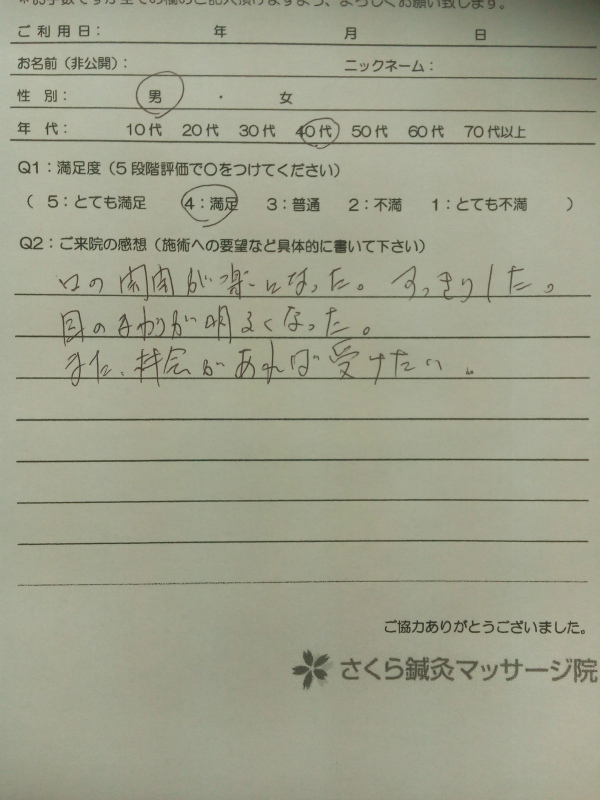 ※お手数ですが全ての欄のご記入頂けますよう、よろしくお願い致します。
ご利用日： 年 月 日
お名前（非公開）： ニックネーム：
性 別： 男 ・ 女
年 代： 10代 20代 30代 40代 50代 60代 70代以上
Q1：満足度（5段階評価で○をつけてください）
（ 5：とても満足 4：満足 3：普通 2：不満 1：とても不満 ）
Q2：ご来院の感想（施術への要望など具体的に書いて下さい）
口の開閉が楽になった。すっきりした。
目のまわりが明るくなった。
また、機会があれば受けたい。
ご協力ありがとうございました。
さくら鍼灸マッサージ院